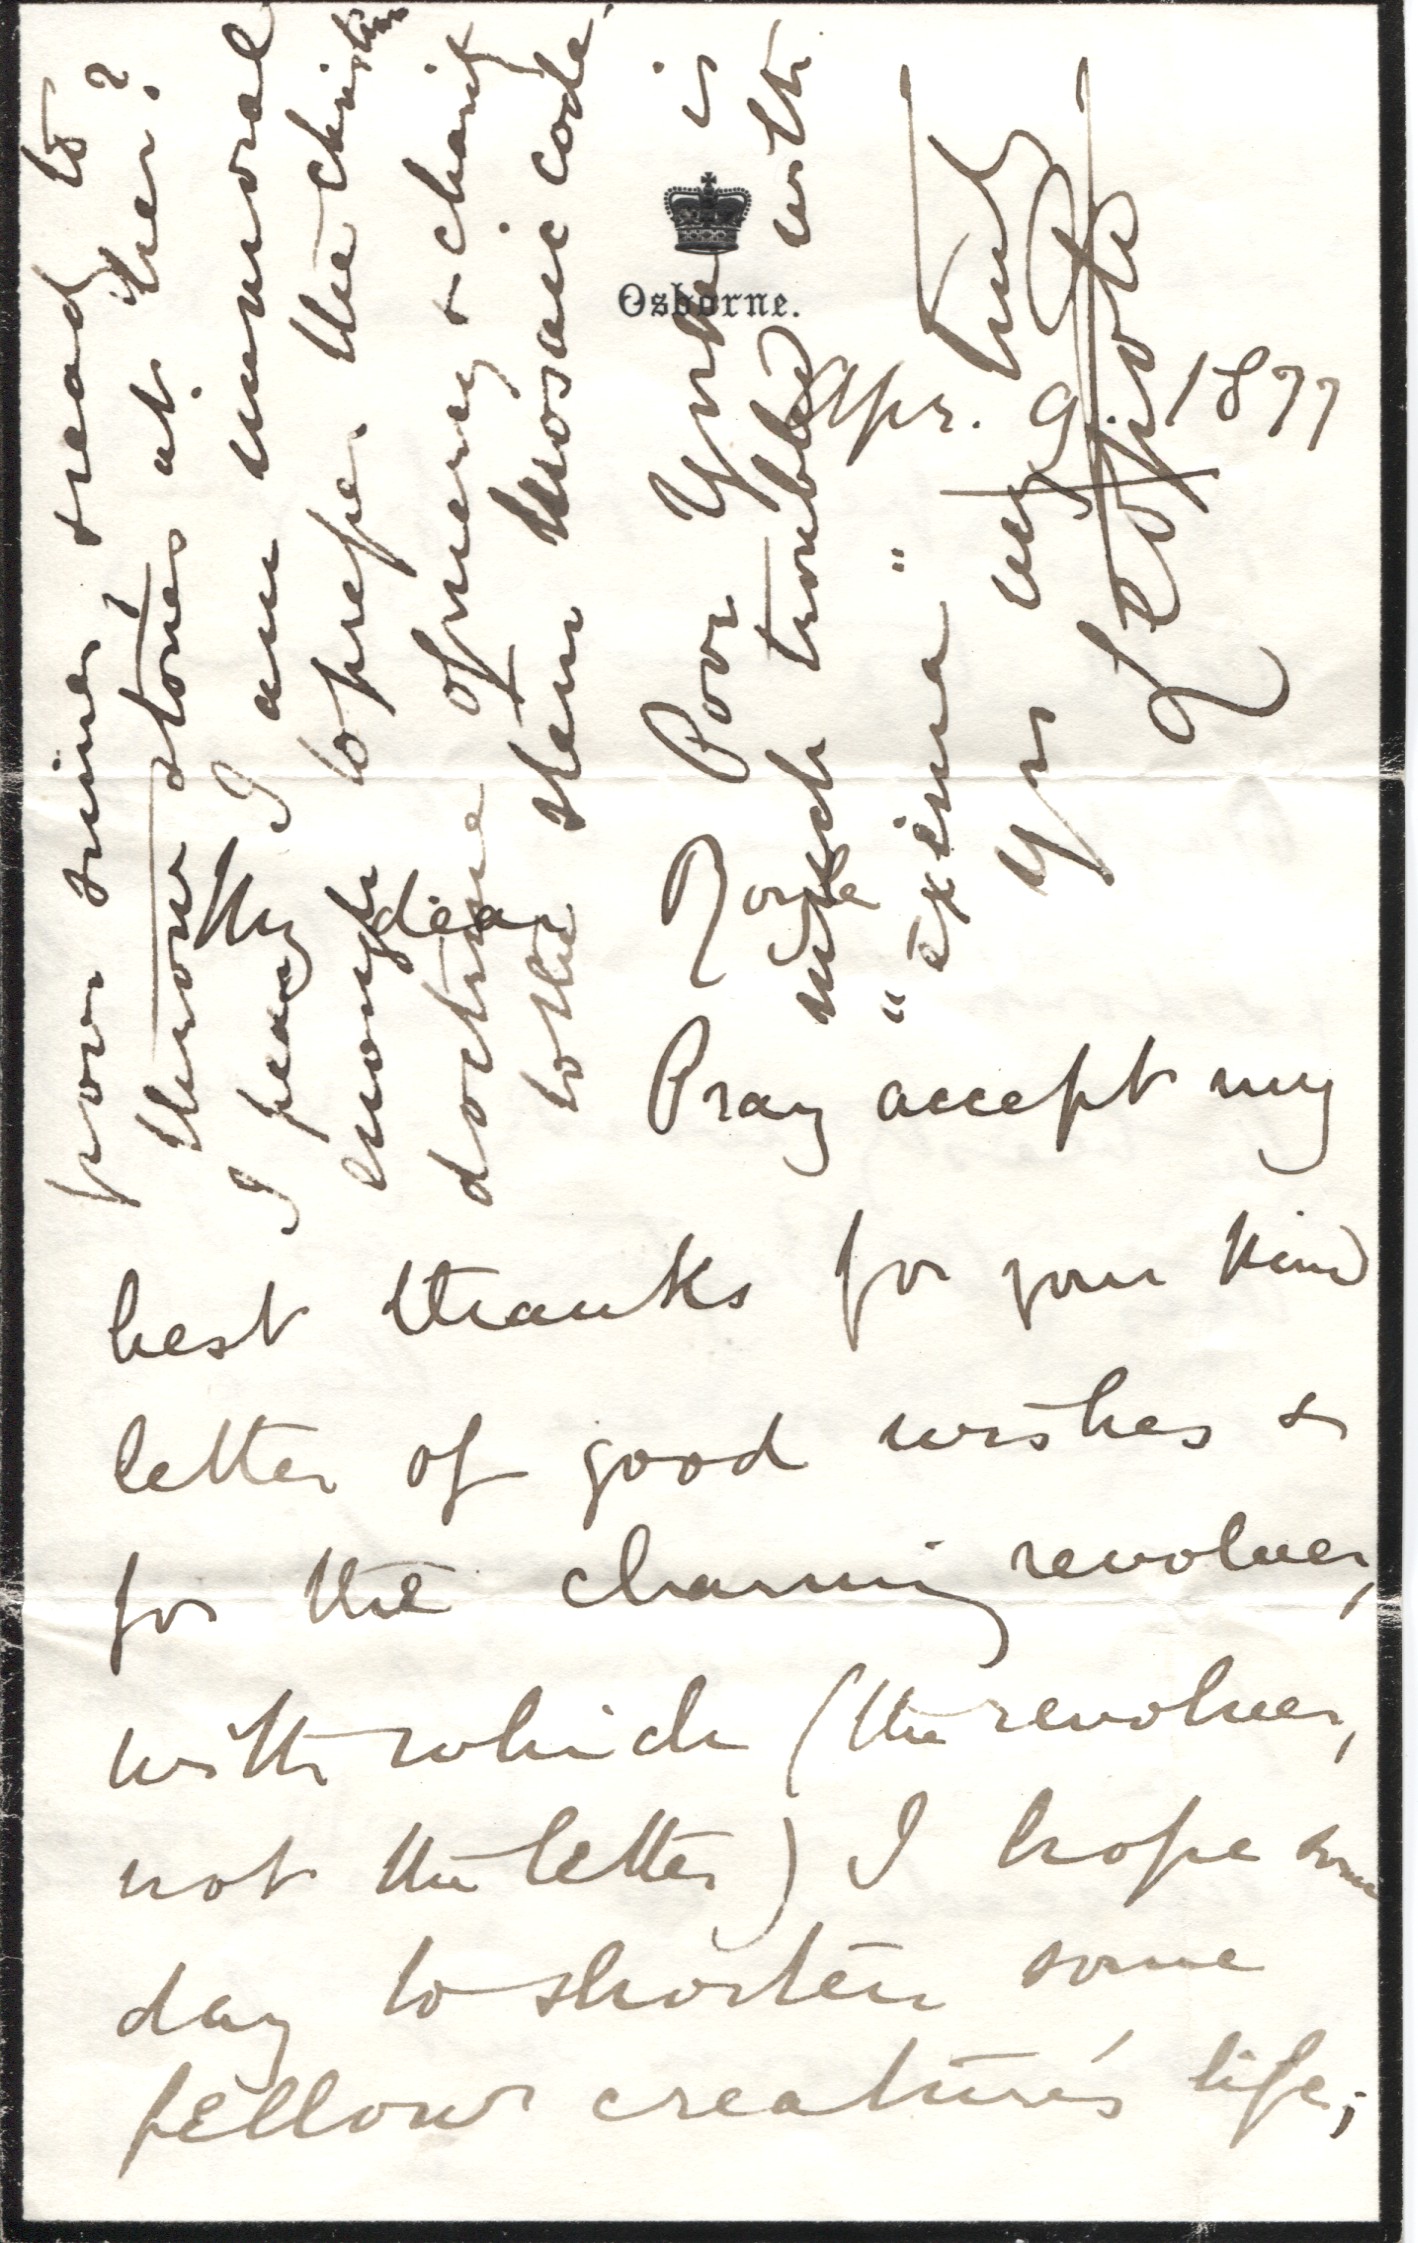 Osborne.
Apr. 9 1877
My dear Yorke
Pray accept my
best thanks for your kind
letter of good wishes &
for the charming revolver,
with which (the revolver,
not the letter) I hope some
day to shorten some
fellow creature's life;
poor sinner, & ready to
throw stones at her?
I fear I am immoral
enough to prefer the christian
doctrine of mercy & charity
to the stern Mosaic code.
Poor Yorke is
much troubled with
"exema"
Yrs very truly
Leopold